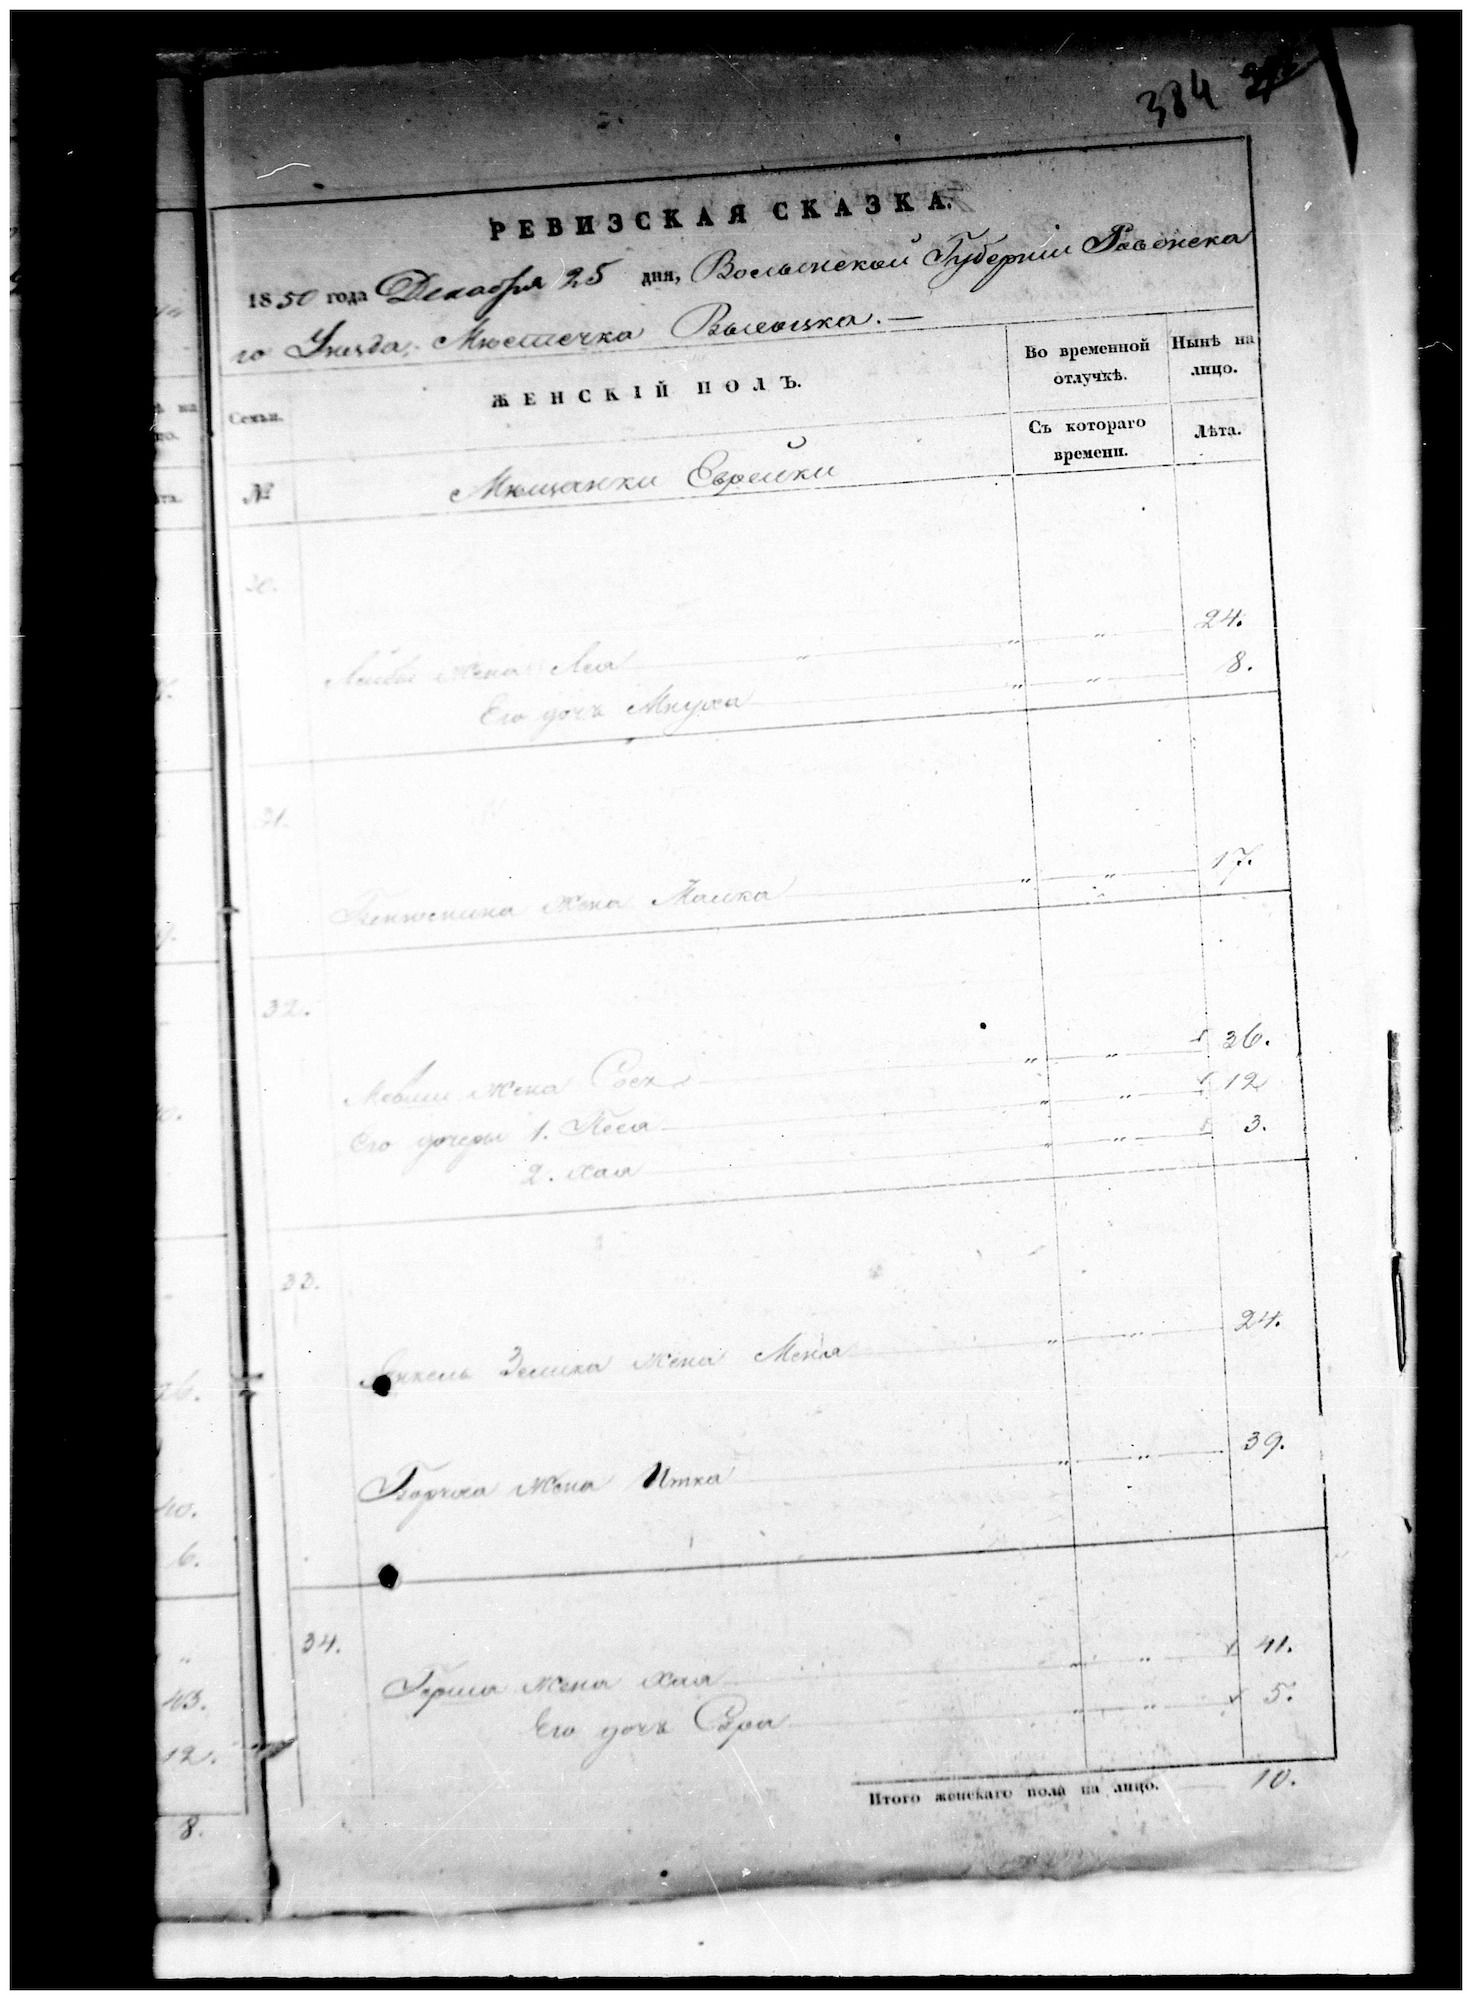 384
РЕВИЗСКАЯ СКАЗКА.
1850 года Декабря 25 дня, Волынской Губернiи Ровенска
го Уѣзда, Мѣстечка
Семьи.
ЖЕНСКIЙ ПОЛЪ.
Во временной отлучкѣ.
Нынѣ на лицо.
Съ котораго времени.
Лѣта.
№
Мѣщанки Еврейки
30.
Лейбы жена Лея " " 24.
Его дочь Мнуха " " 8.
31.
жена Малка " " 17.
32.
Мовши жена " " 36.
Его дочери 1. Песя " " 12
2. Хая " " 3.
33.
Янкель Зелика жена Меня " " 24.
Боруха жена Итка " " 39.
34.
Герша жена Хая " " 41.
Его дочь Сура " " 5.
Итого женскаго пола на лицо. 10.
40.
6.
43.
12.
8.